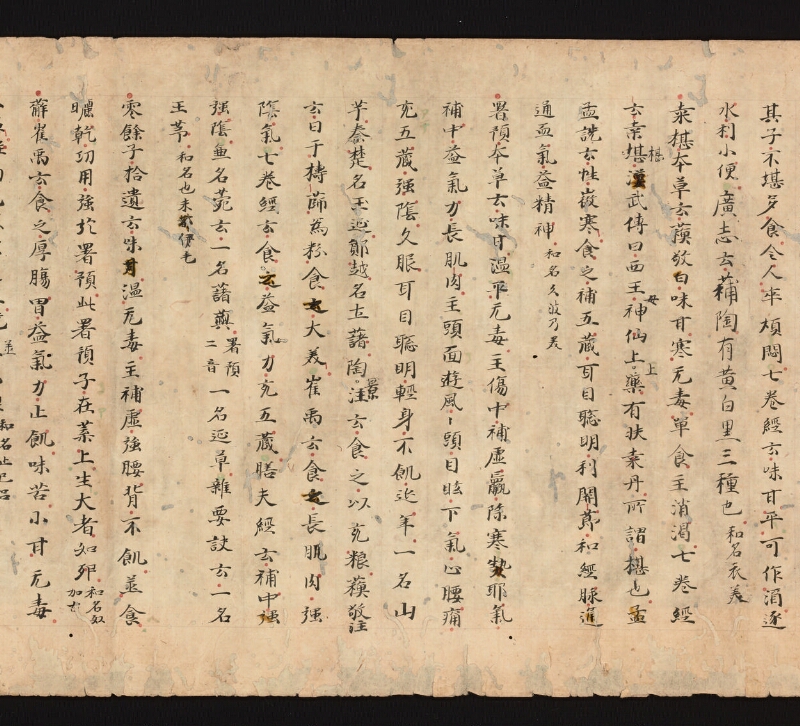 其子不堪多食令人卒煩悶七卷經云味甘平可作酒逐
水利小便廣志云蒲陶有黃白黑三種也和名衣美
桑椹本草云蘓敬曰味甘寒无毒單食主消渴七卷經
云桑椹漢武傳曰西王母神仙上藥有扶桑丹所謂椹也孟
孟詵云性微寒食之補五蔵耳目聡明利關莭和經脉通
通血氣益精神和名久波乃美
署預本草云味甘温平无毒主傷中補虛羸除寒熱耶氣
補中益氣力長肌肉主頭面遊風頭目眩下氣心腰痛
充五蔵强陰久服耳目聡明輕身不飢延年一名山
芋秦楚名玉延鄭越名土藷陶景注云食之以充粮蘓敬注
云日干擣篩為粉食之大美崔禹云食之長肌肉强
陰氣七卷經云食之益氣力充五蔵膳夫經云補中强
强陰魚名苑云一名藷藇署預二音一名延草雜要訣云一名
王茅和名也末都伊毛
零餘子拾遺云味甘温无毒主補虛强腰背不飢並食
曬乾功用强於署預此署預子在葉上生大者如卵和名奴加古
薢崔禹云食之厚腸胃益氣力止飢味苦小甘无毒